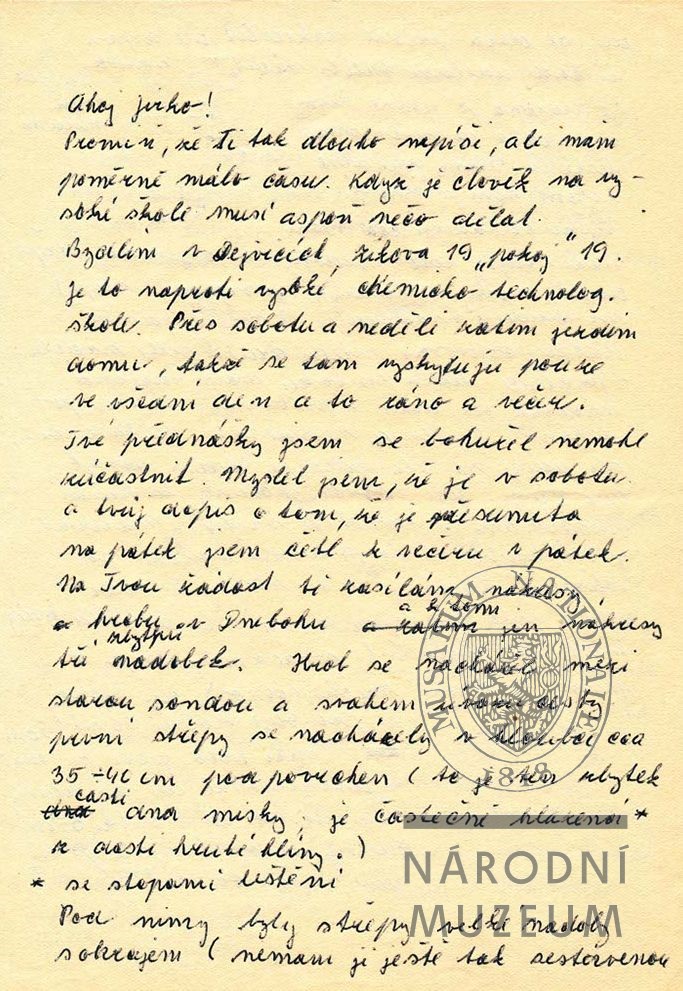 Ahoj Jirko!
Promiň, že Ti tak dlouho nepíši, ale mám
poměrně málo času. Když je člověk na vy-
soké škole musí aspoň něčo dělat.
Bydlím v Dejvicích, Zikova 19 „pokoj" 19.
Je to naproti vysoké chemicko technolog.
škole. Přes sobotu a neděli zatím jezdím
domu, takže se tam vyskytuju pouze
ve všední den a to ráno a večer.
Tvé přednášky jsem se bohužel nemohl
zúčastnit. Myslel jsem, že je v sobotu
a tvůj dopis o tom, že je přesunuta
na pátek jsem četl k večeru v pátek.
Na Tvou žádost ti zasílám nákresy
a k tomu
hrobu v Dnebohu a zatím jen nákresy
zbytku
tří nádobek. Hrob se nacházel mezi
starou sondou a svahem úvozu cesty
první střepy se nacházely v hloubce cca
35÷40 cm pod povrchem (to je ten zbytek
části
dna dna misky; je částečně hlazená *
z dosti hrubé hlíny.)
* se stopami leštění
Pod nimy byly střepy velké nádoby
s okrajem (nemám ji ještě tak sestavenou
MUSEUM NATIONALE
1818
NÁRODNÍ
MUZEUM